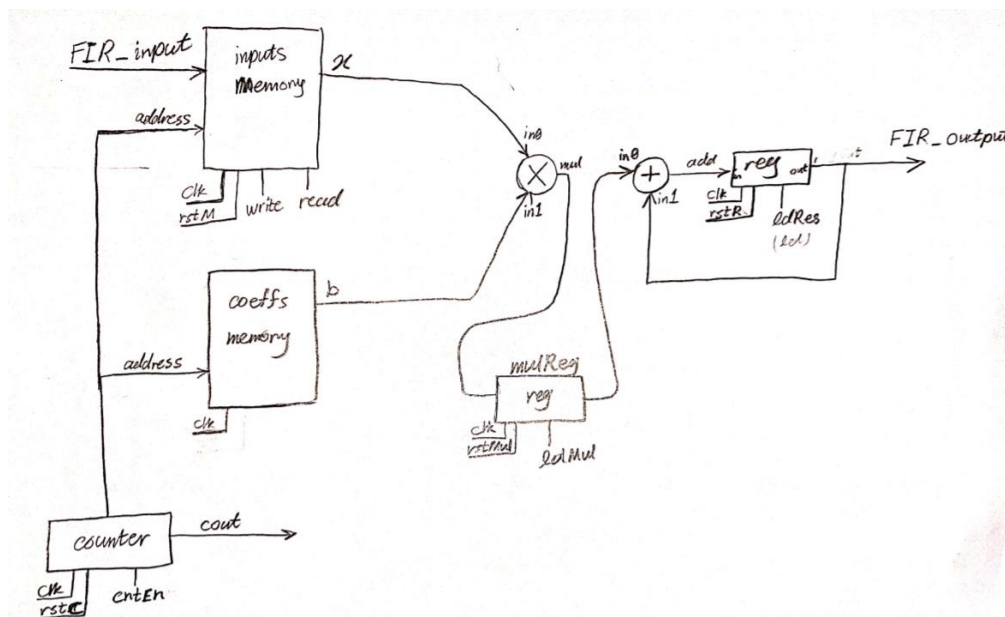 FIR_input
inputs
Memory
x
address
clk
rstM
write
read
in0
mul
in1
in0
add
in1
in
reg
out
FIR_output
clk
rstR
ldRes
(ld)
coeffs
memory
b
address
clk
mulReg
reg
clk
rstMul
ldMul
counter
cout
clk
rstC
cntEn